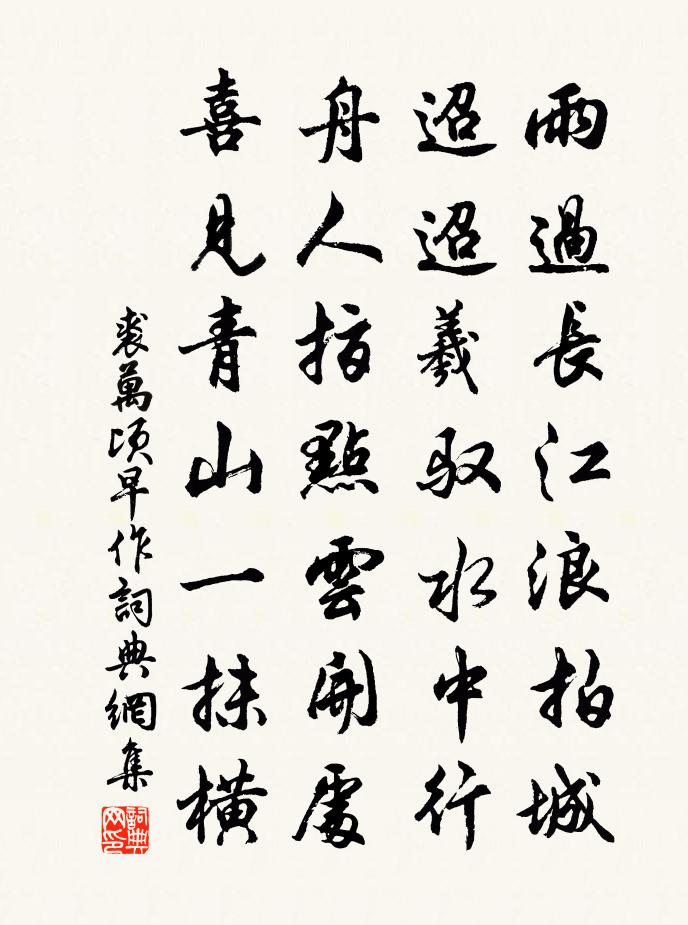 雨過長江浪拍城
迢迢羲馭水中行
舟人指點雲開處
喜見青山一抹橫
裘萬頃早作詞典網集
詞典网印